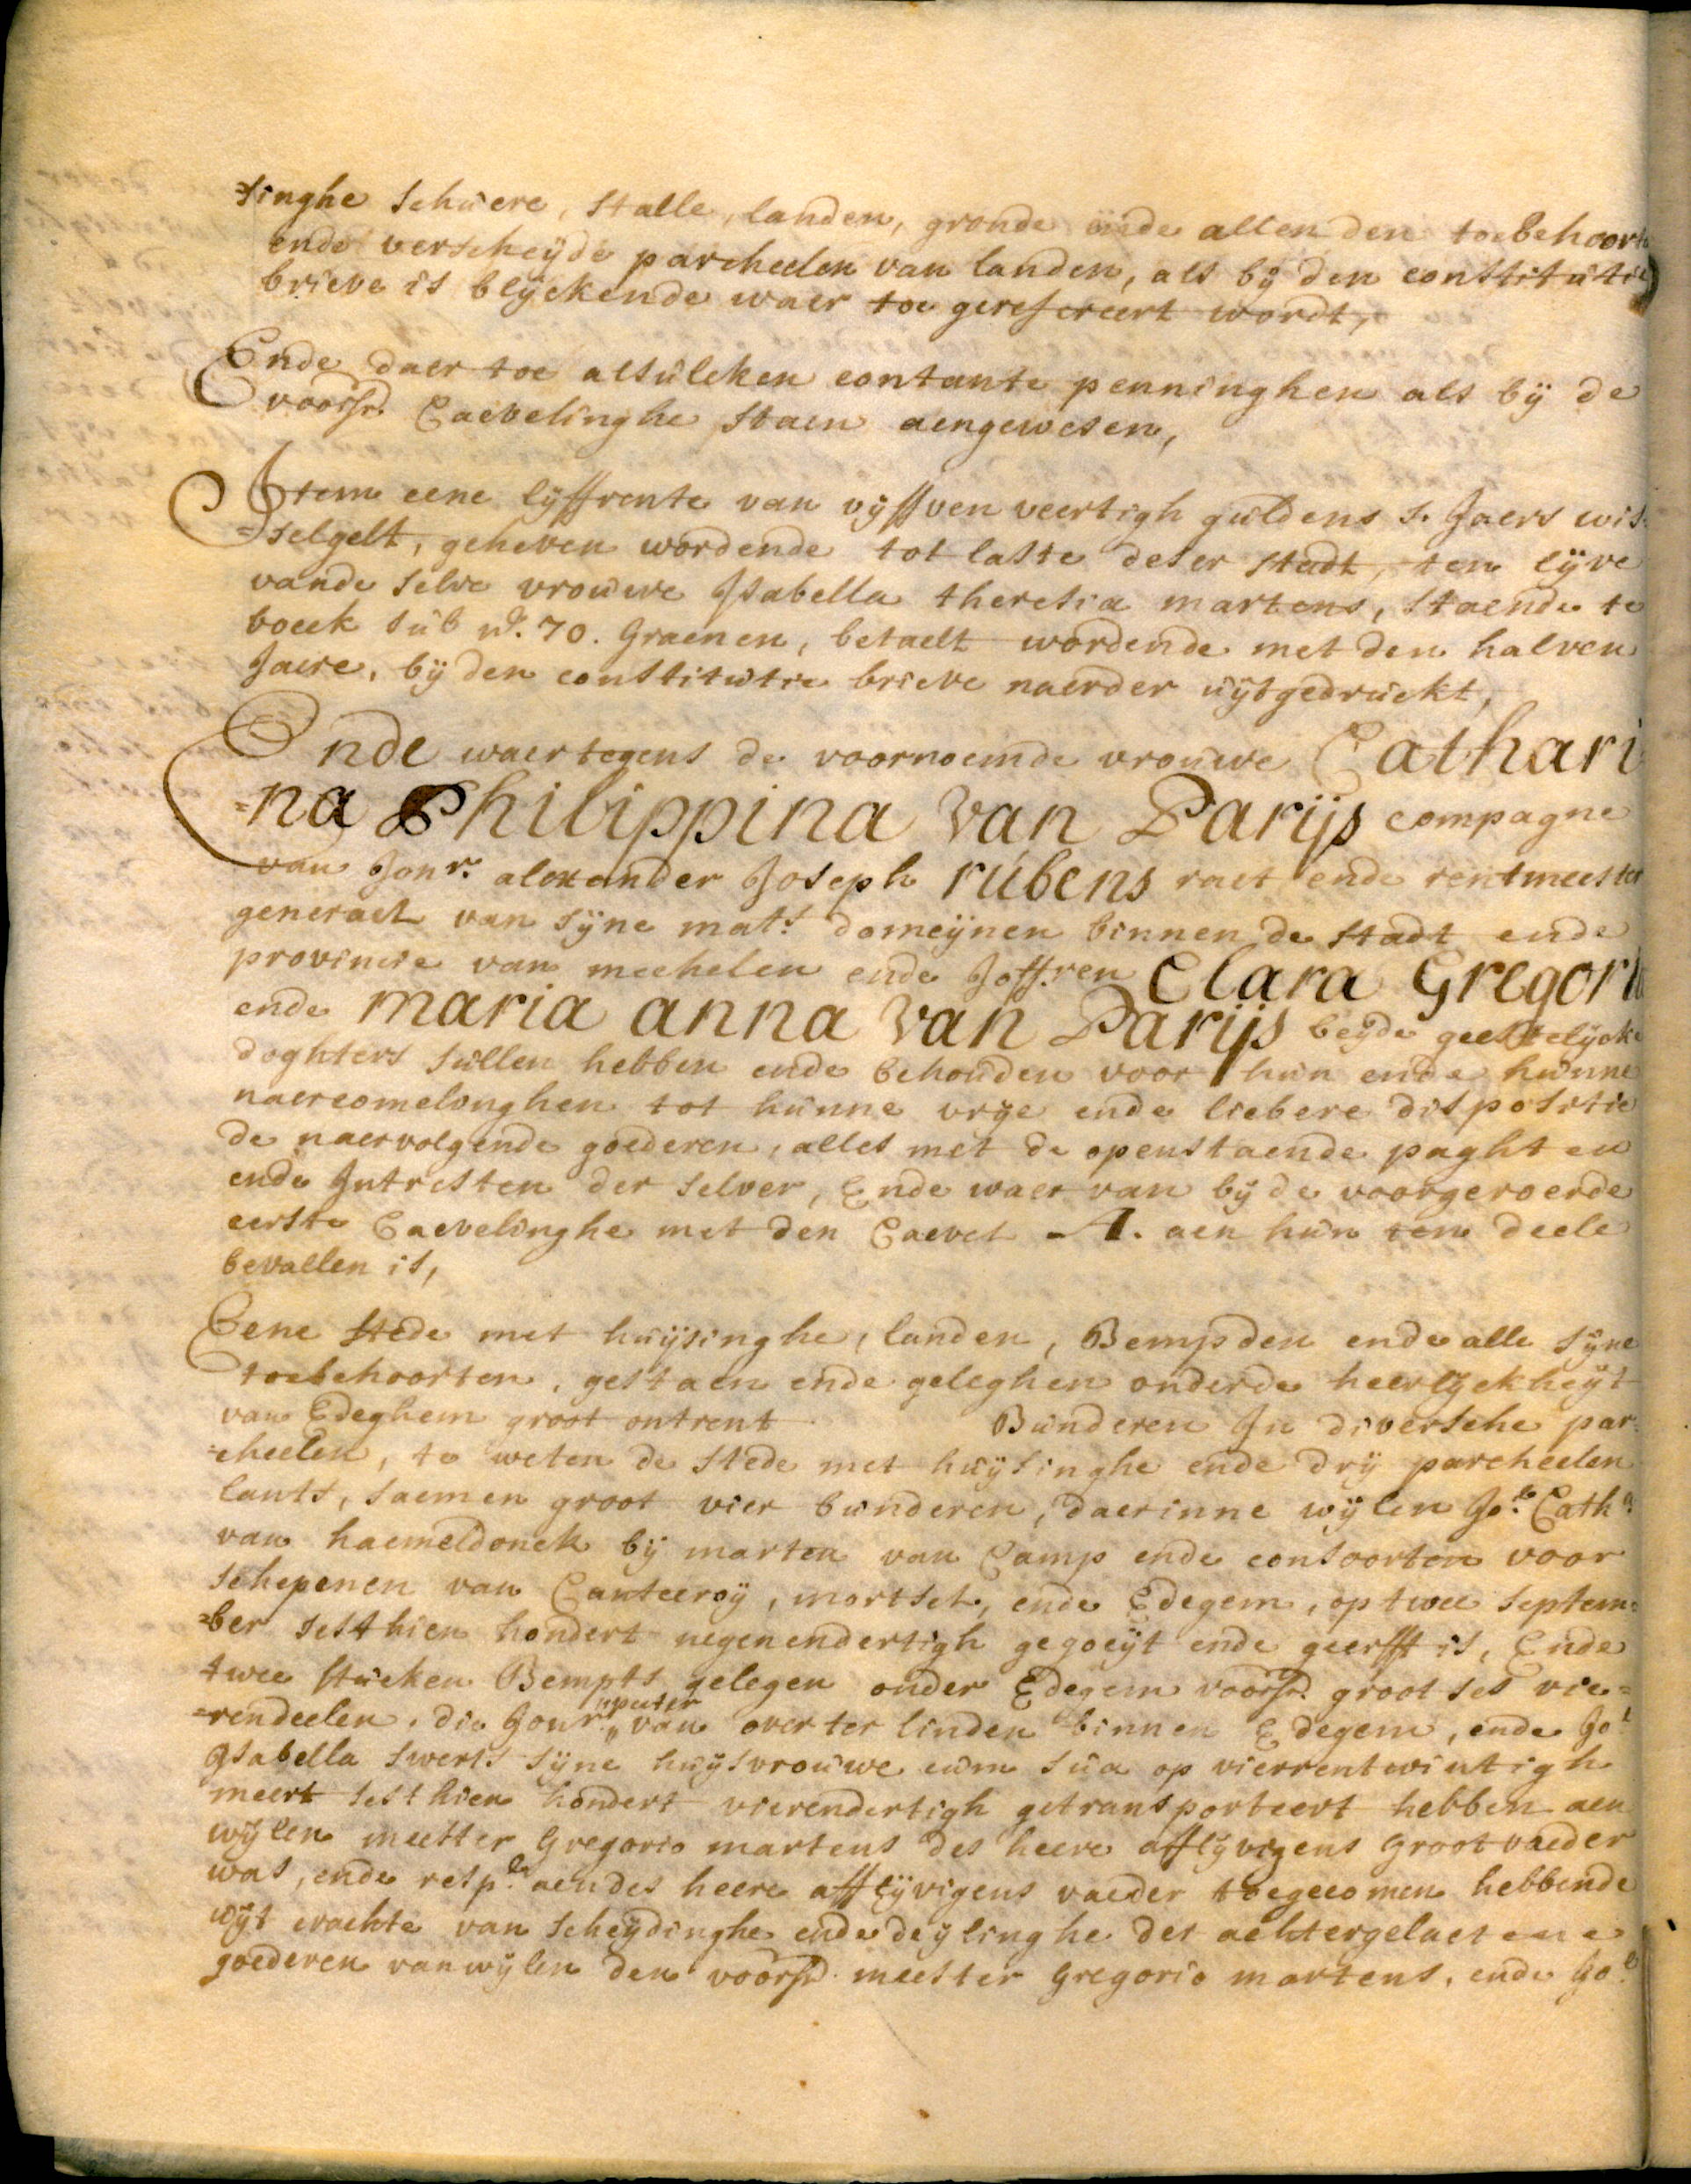 =singhe schuere, stalle, landen, gronde ende allen den toebehoorte
ende verscheÿde parcheelen van landen, als bÿ den constitutie
brieve is blÿckende waer toe gerefereert wordt,
Ende daer toe alsulcken contante penninghen als bÿ de
voorsr. Caevelinghe staen aengewesen,
Item eene lÿffrente van vÿffven veertigh guldens s. Jaers wis-
=selgelt, geheven wordende tot laste deser stadt, ten lÿve
vande selve vrouwe Isabella theresia martens, staende te
boeck sub no. 70. Graenen, betaelt wordende met den halven
Jaere, bÿ den constitutie brieve naerder uÿtgedruckt,
Ende waertegens de voornoemde vrouwe Cathari
=na Philippina van Parijs compagne
van Jonr. alexander Joseph rubens raet ende rentmeester
generael van sÿne mats. domeÿnen binnen de stadt ende
provincie van mechelen ende Joff.ren Clara Gregoria
ende maria anna van Parijs beÿde geestelÿcke
doghters sullen hebben ende behouden voor hun ende hunne
naercomelinghen tot hunne vrÿe ende liebere dispositie
de naervolgende goederen, alles met de openstaende paghten
ende Intresten der selver, Ende waer van bÿ de voorgeroerde
eerste Caevelinghe met den Caevel A. aen hun ten deele
bevallen is,
Eene stede met huÿsinghe, landen, Bempden ende alle sÿne
toebehoorten, gestaen ende geleghen onderde heerlÿckheÿt
van Edeghem groot ontrent Bunderen In diversche par-
=cheelen, te weten de stede met huÿsinghe ende drÿ parcheelen
lants, saemen groot vier bunderen, daerinne wÿlen Jo.e Cath.a
van haemeldonck bÿ marten van Camp ende consoorten voor
schepenen van Canteeroÿ, mortsel, ende Edegem, op twee septem=
=ber sesthien hondert negenendertigh gegoeÿt ende geerfft is, Ende
twee stucken Bempts gelegen onder Edegem voorsr. groot ses vie=
=rendeelen, die Jonr. "peeter" van overter linden binnen Edegem, ende Jo.e
Isabella swerts sÿne huÿsvrouwe cum sua op vierrentwintigh
meert sesthien hondert vierendertigh getransporteert hebben aen
wÿlen meester Gregorio martens des heere afflÿvigens Grootvaeder
was, ende resp.en aendes heere afflÿvigens vaeder toegecomen hebbende
uÿt crachte van scheÿdinghe ende deÿlinghe der achtergelaetene
goederen van wÿlen den voorsr. meester Gregorio martens, ende Jo.e